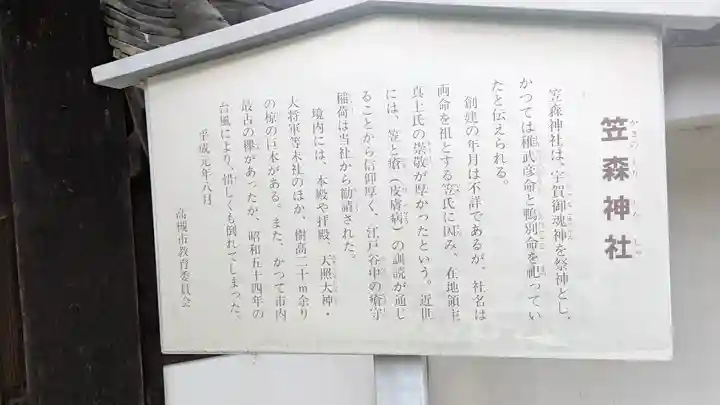 笠森神社
笠森神社は、宇賀御魂神を祭神とし、
かつては稚武彦命と鴨別命を祀ってい
たと伝えられる。
創建の年月は不詳であるが、社名は
両命を祖とする笠氏に因み、在地領主
真上氏の崇敬が厚かったという。近世
には、笠と瘡（皮膚病）の訓読が通じ
ることから信仰厚く、江戸谷中の瘡守
稲荷は当社から勧請された。
境内には、本殿や拝殿、天照大神・
大将軍等末社のほか、樹高二十m余り
の椋の巨木がある。また、かつて市内
最古の欅があったが、昭和五十四年の
台風により、惜しくも倒れてしまった。
平成元年八月
高槻市教育委員会